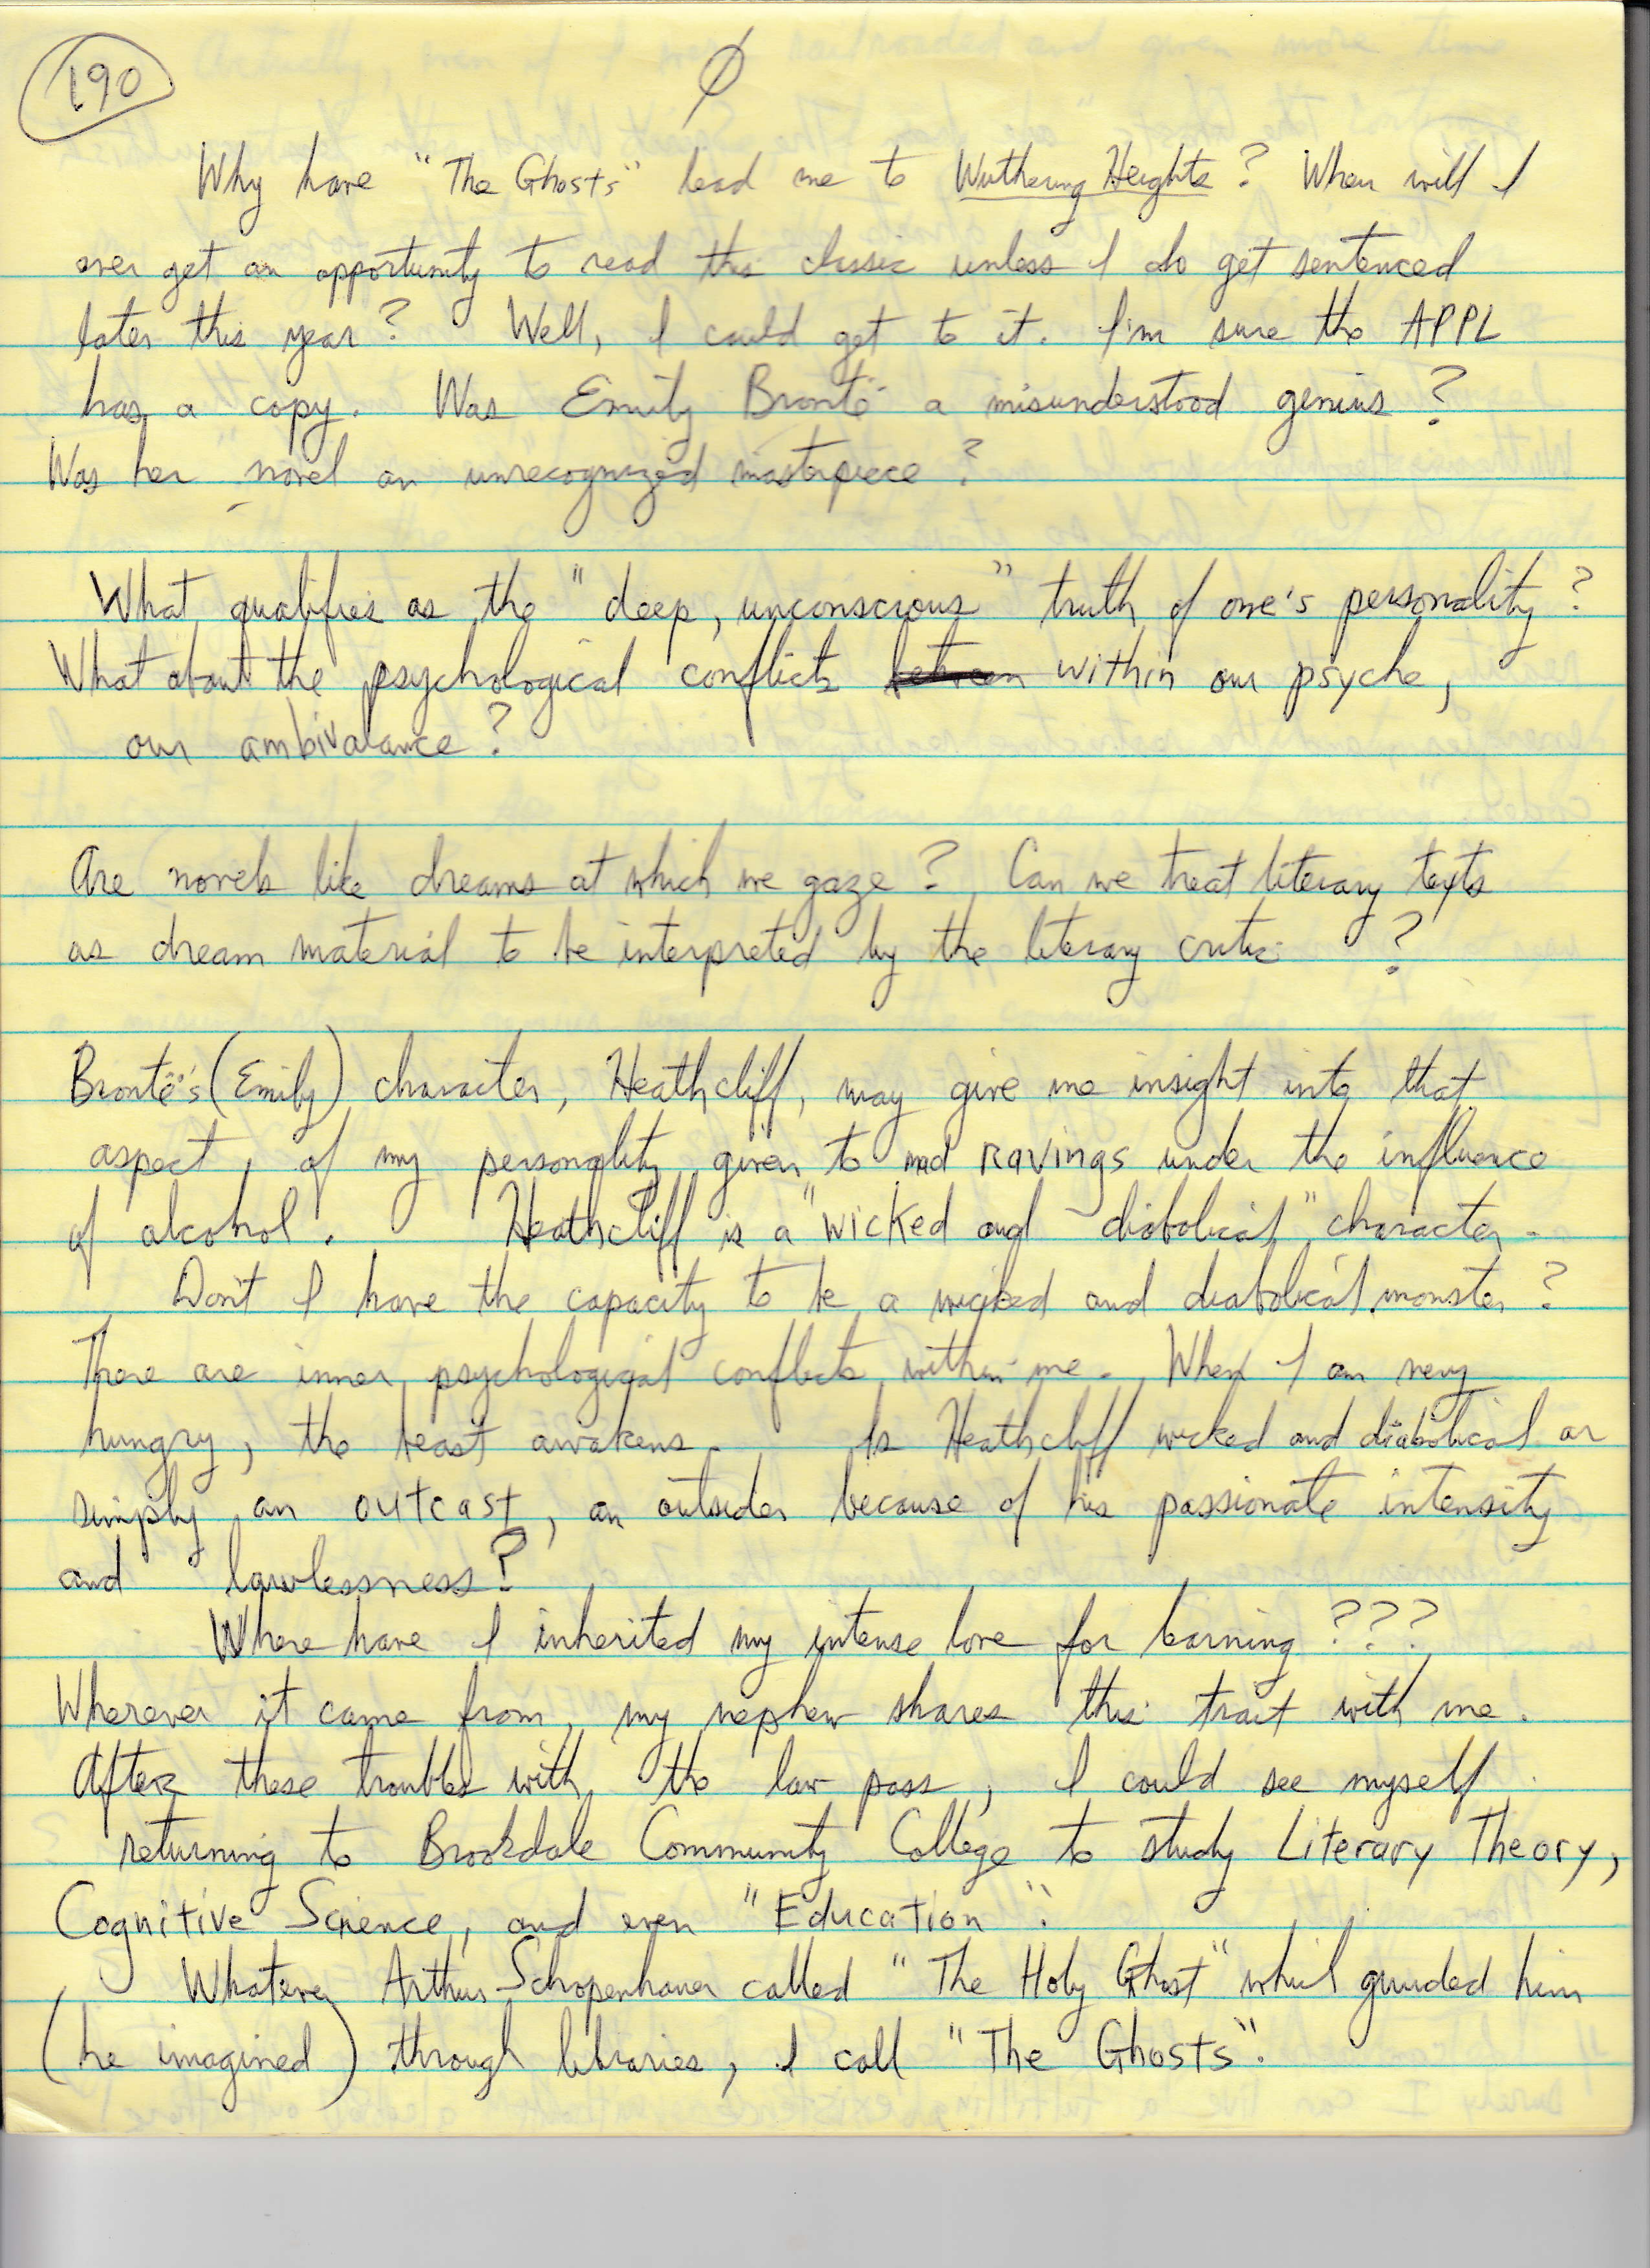 190
Ø
Why have "The Ghosts" lead me to Wuthering Heights? When will I
ever get an opportunity to read this classic unless I do get sentenced
later this year? Well, I could get to it. I'm sure the APPL
has a copy. Was Emily Brontë a misunderstood genius?
Was her novel an unrecognized masterpiece?
What qualifies as the "deep, unconscious" truth of one's personality?
What about the psychological conflicts between within our psyche,
our ambivalance?
Are novels like dreams at which we gaze? Can we treat literary texts
as dream material to be interpreted by the literary critic ?
Brontë's (Emily) character, Heathcliff, may give me insight into that
aspect, of my personality given to mad ravings under the influence
of alcohol. Heathcliff is a "wicked and diabolical" character.
Don't I have the capacity to be a wicked and diabolical monster?
There are inner psychological conflicts within me. When I am very
hungry, the beast awakens. Is Heathcliff wicked and diabolical or
simply an outcast, an outsider because of his passionate intensity
and lawlessness?
Where have I inherited my intense love for learning ???
Wherever it came from, my nephew shares this trait with me.
After these troubles with the law pass, I could see myself
returning to Brookdale Community College to study Literary Theory,
Cognitive Science, and even "Education".
Whatever Arthur Schopenhauer called "The Holy Ghost" which guided him
(he imagined) through libraries, I call "The Ghosts".